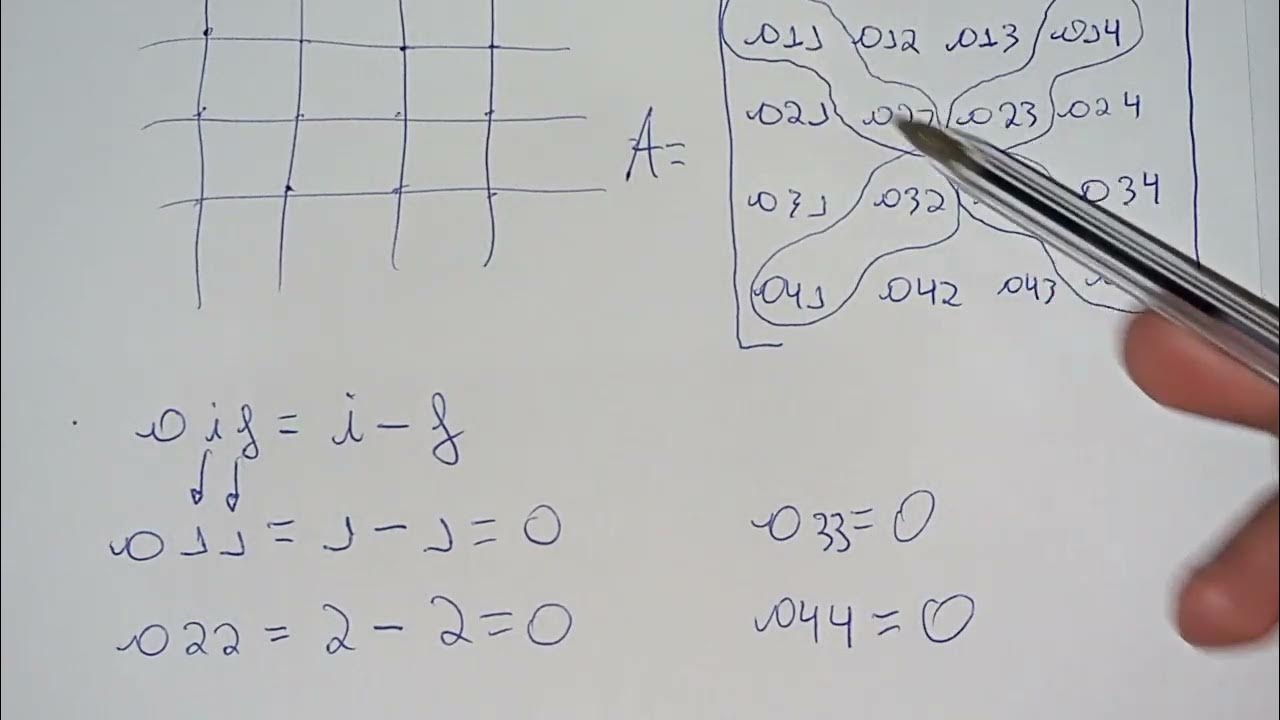 a11 a12 a13 a14
A= a21 a22 a23 a24
a31 a32 a34
a41 a42 a43
aij = i - j
a11 = 1 - 1 = 0
a33 = 0
a22 = 2 - 2 = 0
a44 = 0